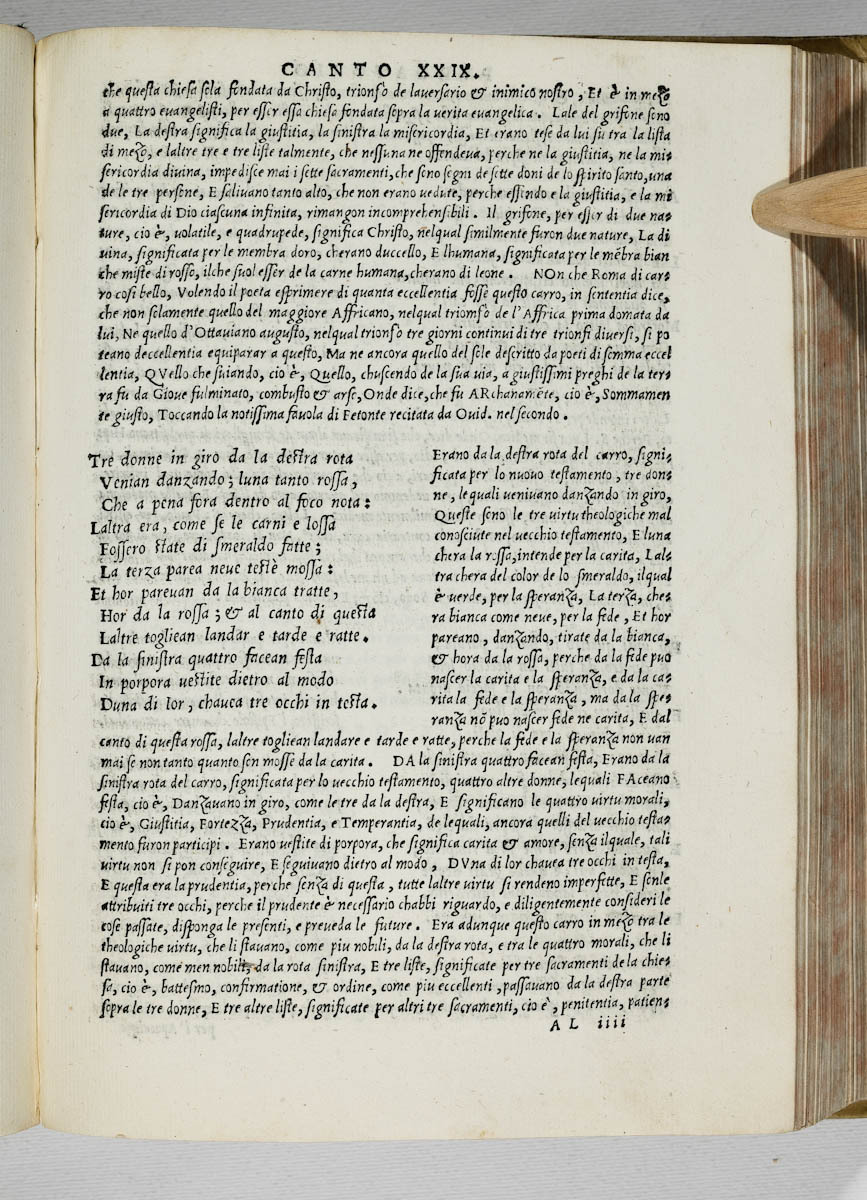 CANTO XXIX.
che questa chiesa sola fondata da Christo, trionfo de lauersario & inimico nostro, Et è in mezo
a quattro euangelisti, per esser essa chiesa fondata sopra la uerita euangelica. Lale del grifone sono
due, La destra significa la giustitia, la sinistra la misericordia, Et erano tese da lui su tra la lista
di mezo, e laltre tre e tre liste talmente, che nessuna ne offendeua, perche ne la giustitia, ne la mi=
sericordia diuina, impedisce mai i sette sacramenti, che sono segni de sette doni de lo spirito santo, una
de le tre persone, E saliuano tanto alto, che non erano uedute, perche essendo e la giustitia, e la mi
sericordia di Dio ciascuna infinita, rimangon incomprehensibili. Il grifone, per esser di due na=
ture, cio è, uolatile, e quadrupede, significa Christo, nelqual similmente furon due nature, La di
uina, significata per le membra doro, cherano duccello, E lhumana, significata per le mẽbra bian
che miste di rosso, ilche suol esser de la carne humana, cherano di leone. NOn che Roma di car=
ro cosi bello, Volendo il poeta esprimere di quanta eccellentia fosse questo carro, in sententia dice,
che non solamente quello del maggiore Affricano, nelqual triomfò de l'Affrica prima domata da
lui, Ne quello d'Ottauiano augusto, nelqual trionfo tre giorni continui di tre trionfi diuersi, si po
teano deccellentia equiparar a questo, Ma ne ancora quello del sole descritto da poeti di somma eccel
lentia, QVello che suiando, cio è, Quello, chuscendo de la sua uia, a giustissimi preghi de la ter=
ra fu da Gioue fulminato, combusto & arso, Onde dice, che fu ARchanamẽte, cio è, Sommamen
te giusto, Toccando la notissima fauola di Fetonte recitata da Ouid. nel secondo.
Tre donne in giro da la destra rota
Venian danzando; luna tanto rossa,
Che a pena fora dentro al foco nota:
Laltra era, come se le carni e lossa
Fossero state di smeraldo fatte;
La terza parea neue testè mossa:
Et hor pareuan da la bianca tratte,
Hor da la rossa; & al canto di questa
Laltre togliean landar e tarde e ratte.
Da la sinistra quattro facean festa
In porpora uestite dietro al modo
Duna di lor, chauea tre occhi in testa.
Erano da la destra rota del carro, signi=
ficata per lo nuouo testamento, tre don=
ne, lequali ueniuano danzando in giro,
Queste sono le tre uirtu theologiche mal
conosciute nel uecchio testamento, E luna
chera la rossa, intende per la carita, Lal=
tra chera del color de lo smeraldo, ilqual
è uerde, per la speranza, La terza, che=
ra bianca come neue, per la fede, Et hor
pareano, danzando, tirate da la bianca,
& hora da la rossa, perche da la fede puo
nascer la carita e la speranza, e da la ca=
rita la fede e la speranza, ma da la spe=
ranza nõ puo nascer fede ne carita, E dal
canto di questa rossa, laltre togliean landare e tarde e ratte, perche la fede e la speranza non uan
mai se non tanto quanto son mosse da la carita. DA la sinistra quattro facean festa, Erano da la
sinistra rota del carro, significata per lo uecchio testamento, quattro altre donne, lequali FAceano
festa, cio è, Danzauano in giro, come le tre da la destra, E significano le quattro uirtu morali,
cio è, Giustitia, Fortezza, Prudentia, e Temperantia, de lequali, ancora quelli del uecchio testa=
mento furon participi. Erano uestite di porpora, che significa carita & amore, senza ilquale, tali
uirtu non si pon conseguire, E seguiuano dietro al modo, DVna di lor chauea tre occhi in testa,
E questa era la prudentia, perche senza di questa, tutte laltre uirtu si rendeno imperfette, E sonle
attribuiti tre occhi, perche il prudente è necessario chabbi riguardo, e diligentemente consideri le
cose passate, disponga le presenti, e preueda le future. Era adunque questo carro in mezo tra le
theologiche uirtu, che li stauano, come piu nobili, da la destra rota, e tra le quattro morali, che li
stauano, come men nobili, da la rota sinistra, E tre liste, significate per tre sacramenti de la chie=
sa, cio è, battesmo, confirmatione, & ordine, come piu eccellenti, passauano da la destra parte
sopra le tre donne, E tre altre liste, significate per altri tre sacramenti, cio è, penitentia, patien=
AL iiii